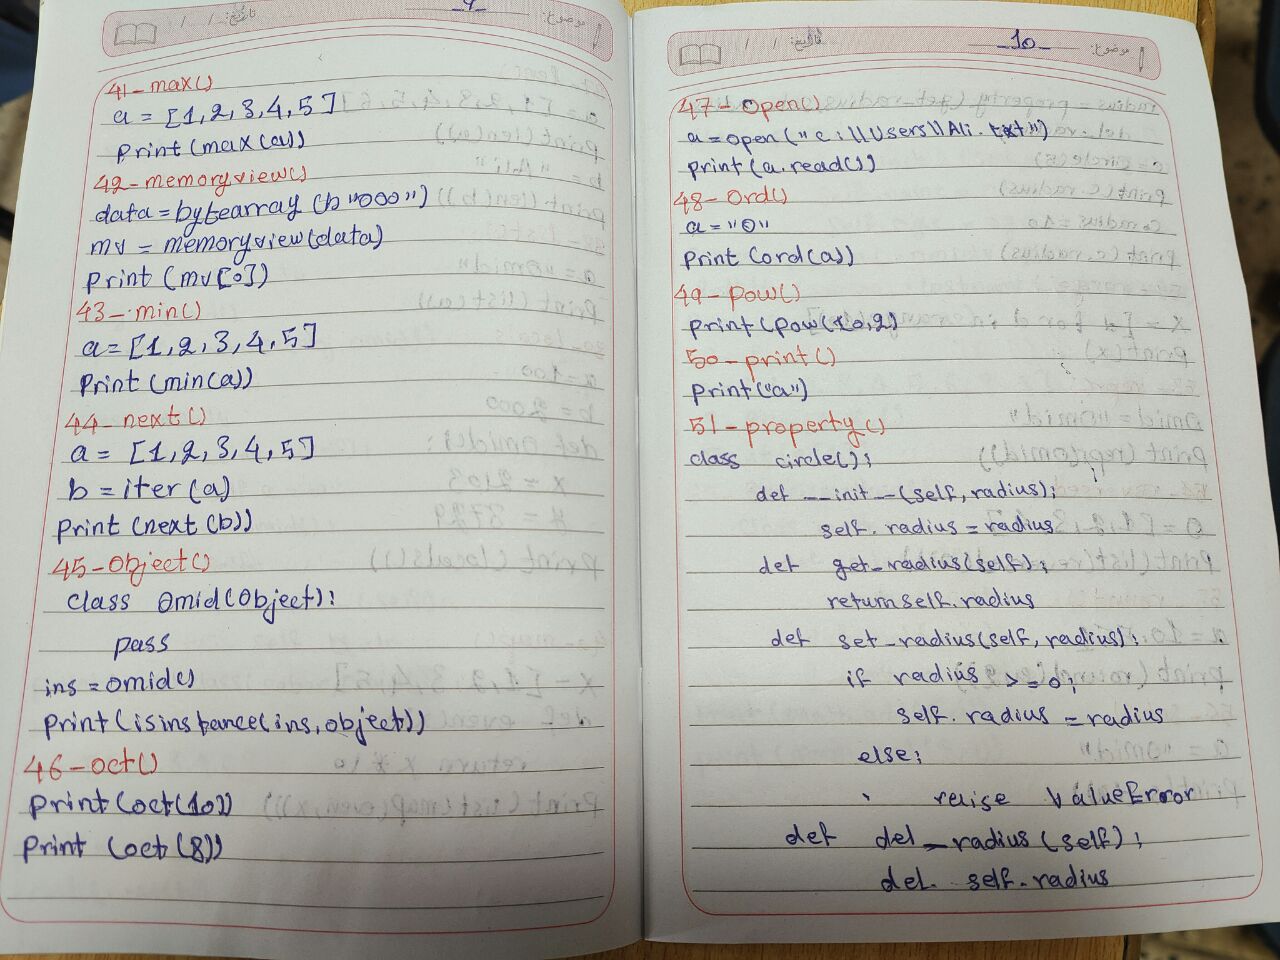 موضوع:
تاریخ: / /
9
41-max()
a = [1,2,3,4,5]
print(max(a))
42-memoryview()
data=bytearray(b"000")
mv = memoryview(data)
print (mv[0])
43-min()
a=[1,2,3,4,5]
Print (min(a))
44-next()
a = [1,2,3,4,5]
b=iter(a)
Print (next(b))
45-Object()
class Omid(Object):
pass
ins=omid()
print(isinstance(ins,object))
46-oct()
Print(oct(10))
Print (oct(8))
موضوع:
تاریخ: / /
_10_
47-open()
a=open("c:\\Users\\Ali.txt")
print(a.read())
48-Ord()
a="0"
print(ord(a))
49-pow()
print(pow(10,2)
50-print()
print("a")
51-property()
class circle():
def __init__(self, radius):
self.radius=radius
def get_radius(self):
return self.radius
def set_radius(self, radius):
if radius >=0:
self.radius = radius
else:
raise ValueError
def del_radius(self):
del. self.radius